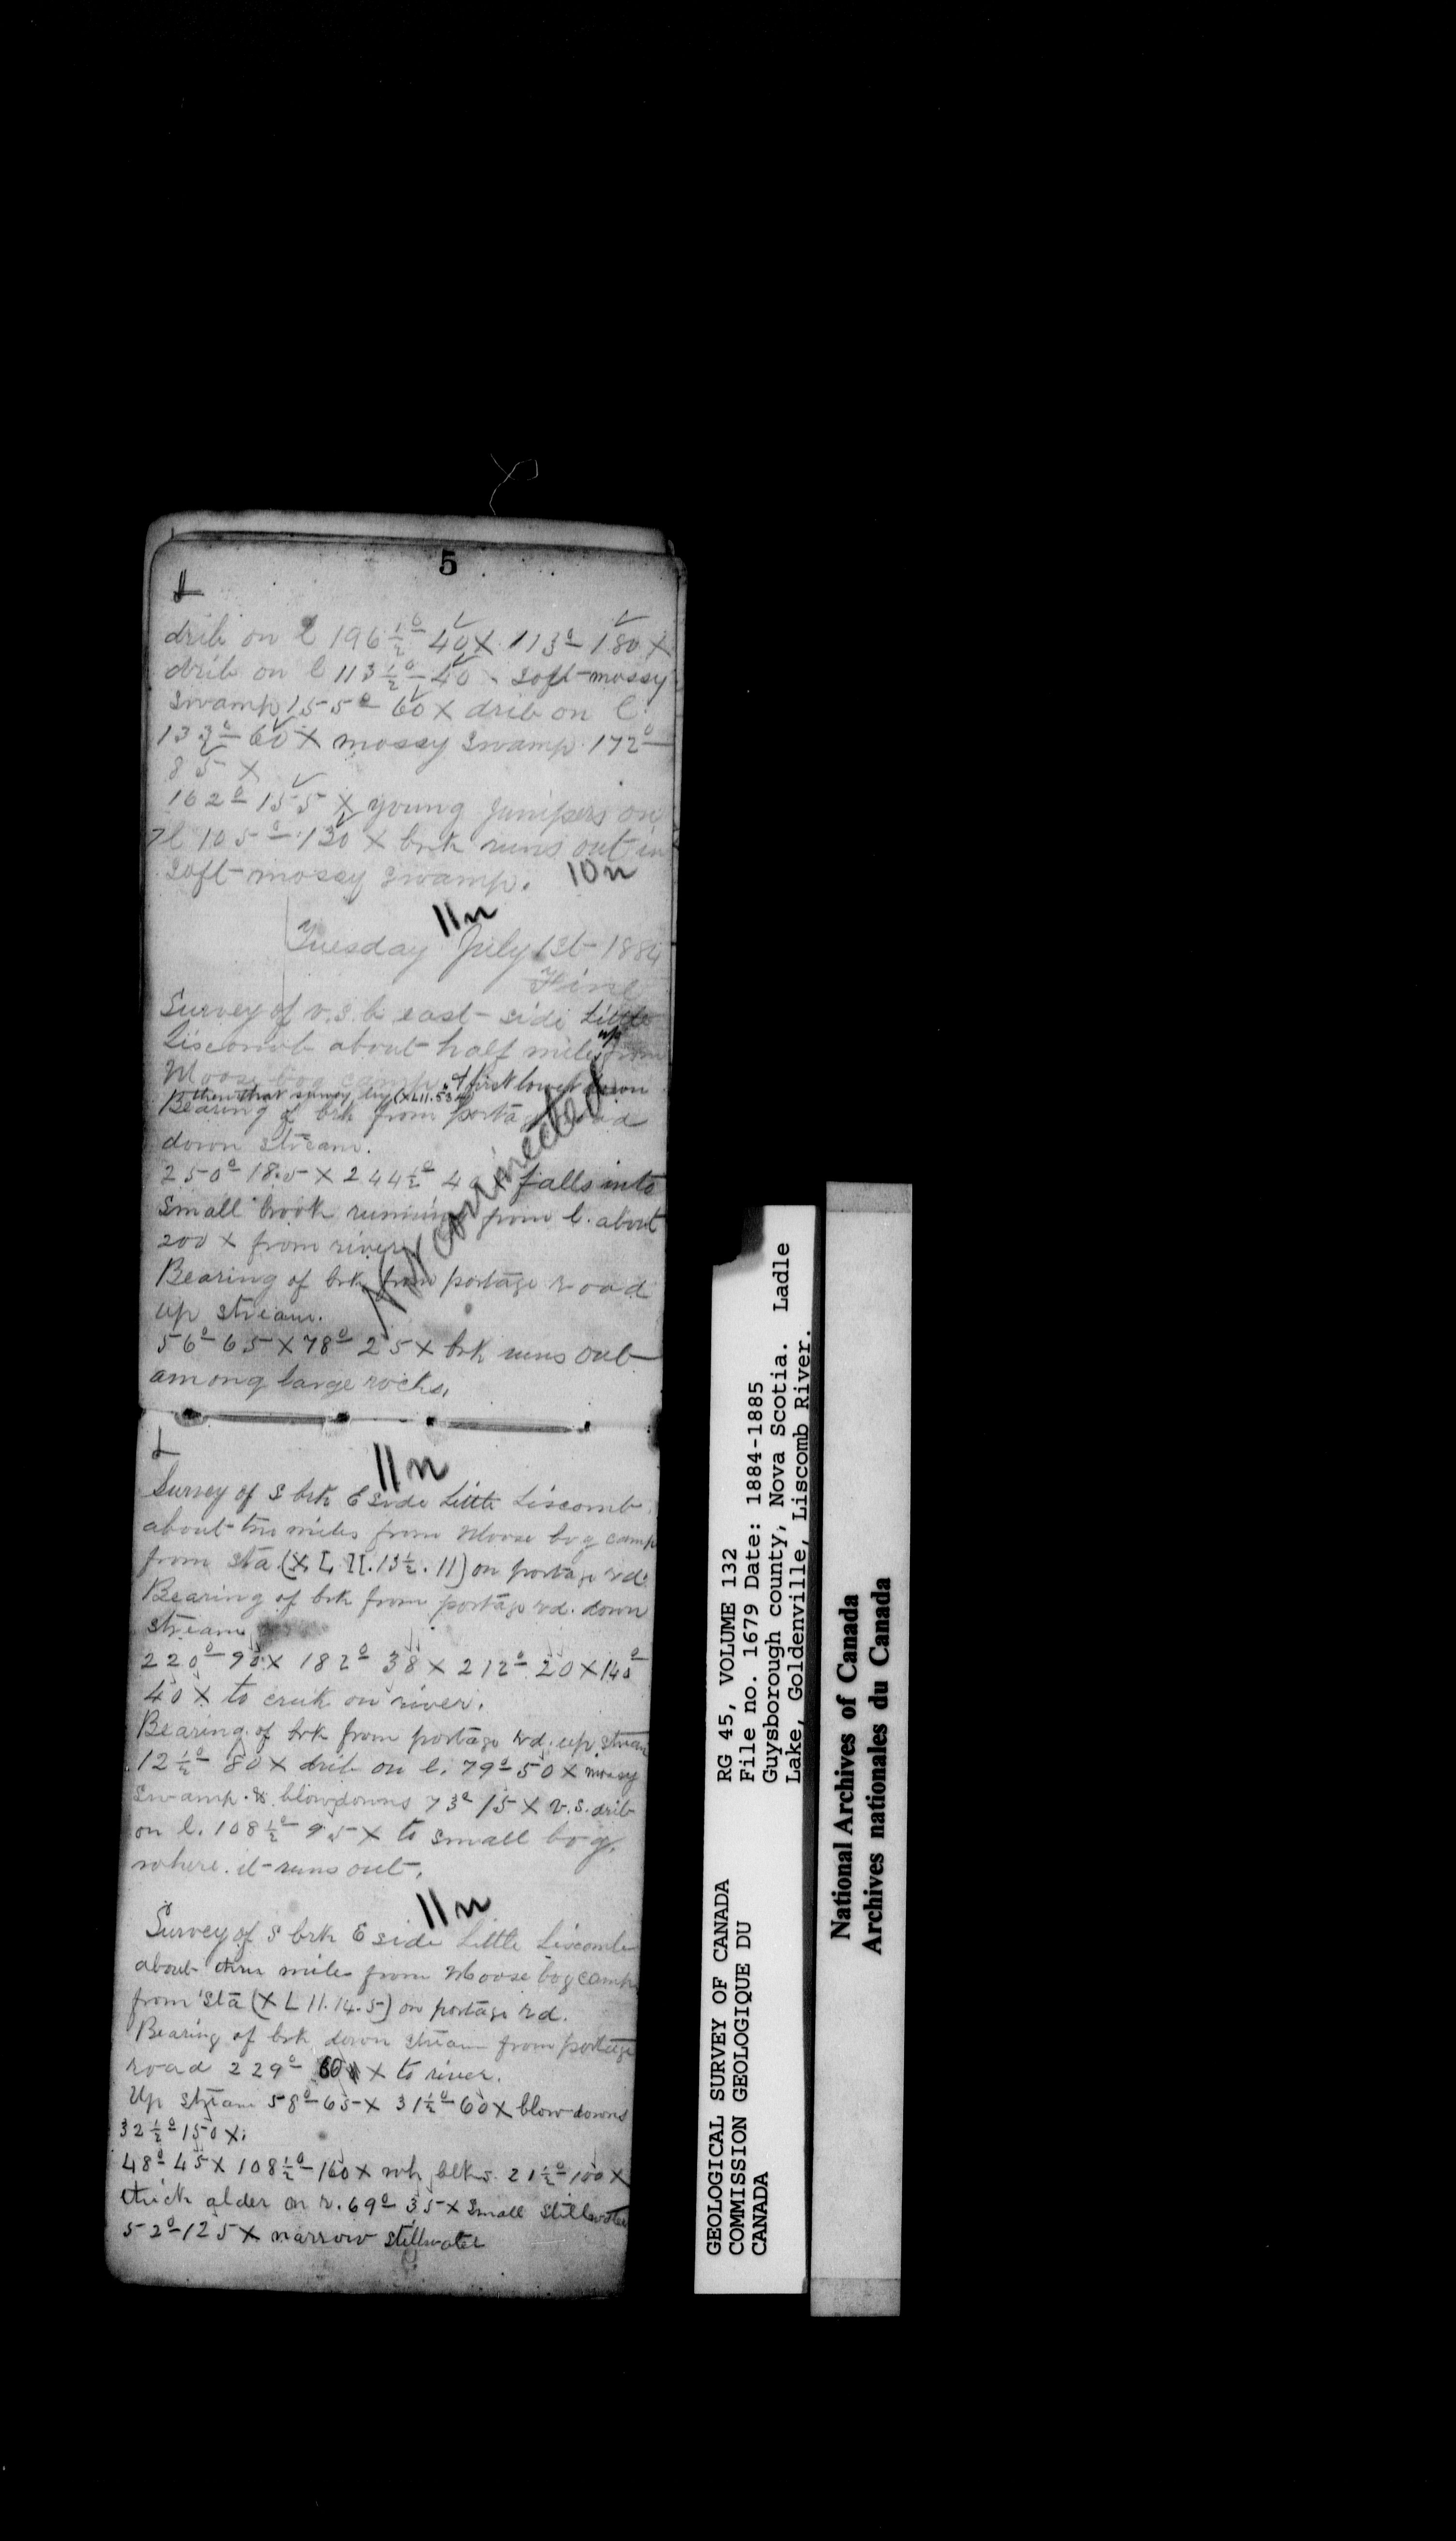 5
drib on l 196½° 40 X 113° 180 X
drib on l 113½° 40 soft mossy
swamp 155° 60 X drib on l.
133° 60 X mossy swamp 172°
85 X
162° 155 X young junipers on
l 105° 130 X brk runs out in
soft mossy swamp. 10n
11n
Tuesday July 1st 1884
Fine
Survey of v.s.b. east side Little
Liscomb about half mile up from
Moose bog camp & first lower down
then that survey
Bearing of brk from portage road
down stream.
250° 185 X 244½° 40 X falls into
small brook running from l. about
200 X from river
Not connected
Bearing of brk from portage road
up stream.
56° 65 X 78° 25 X brk runs out
among large rocks.
11n
Survey of S brk E side Little Liscomb
about two miles from Moose bog camp
from sta (X L II. 13½. 11) on portage rd.
Bearing of brk from portage rd. down
stream
220° 90 X 182° 38 X 212° 20 X 140°
40 X to creek on river.
Bearing of brk from portage rd. up stream
12½° 80 X drib on l. 79° 50 X mossy
swamp & blowdowns 73° 15 X v.s. drib
on l. 108½° 95 X to small bog,
where it runs out.
11n
Survey of S brk E side Little Liscomb
about three miles from Moose bog camp
from Sta (X L 11. 14. 5) on portage rd.
Bearing of brk down stream from portage
road 229° 60 X to river.
Up stream 58° 65 X 31½° 60 X blow downs
32½° 150 X.
48° 45 X 108½° 160 X wh blks. 21½° 100 X
thick alder on r. 69° 35 X small stillwater
52° 125 X narrow stillwater
GEOLOGICAL SURVEY OF CANADA
COMMISSION GEOLOGIQUE DU
CANADA
RG 45, VOLUME 132
File no. 1679 Date: 1884-1885
Guysborough county, Nova Scotia. Ladle
Lake, Goldenville, Liscomb River.
National Archives of Canada
Archives nationales du Canada